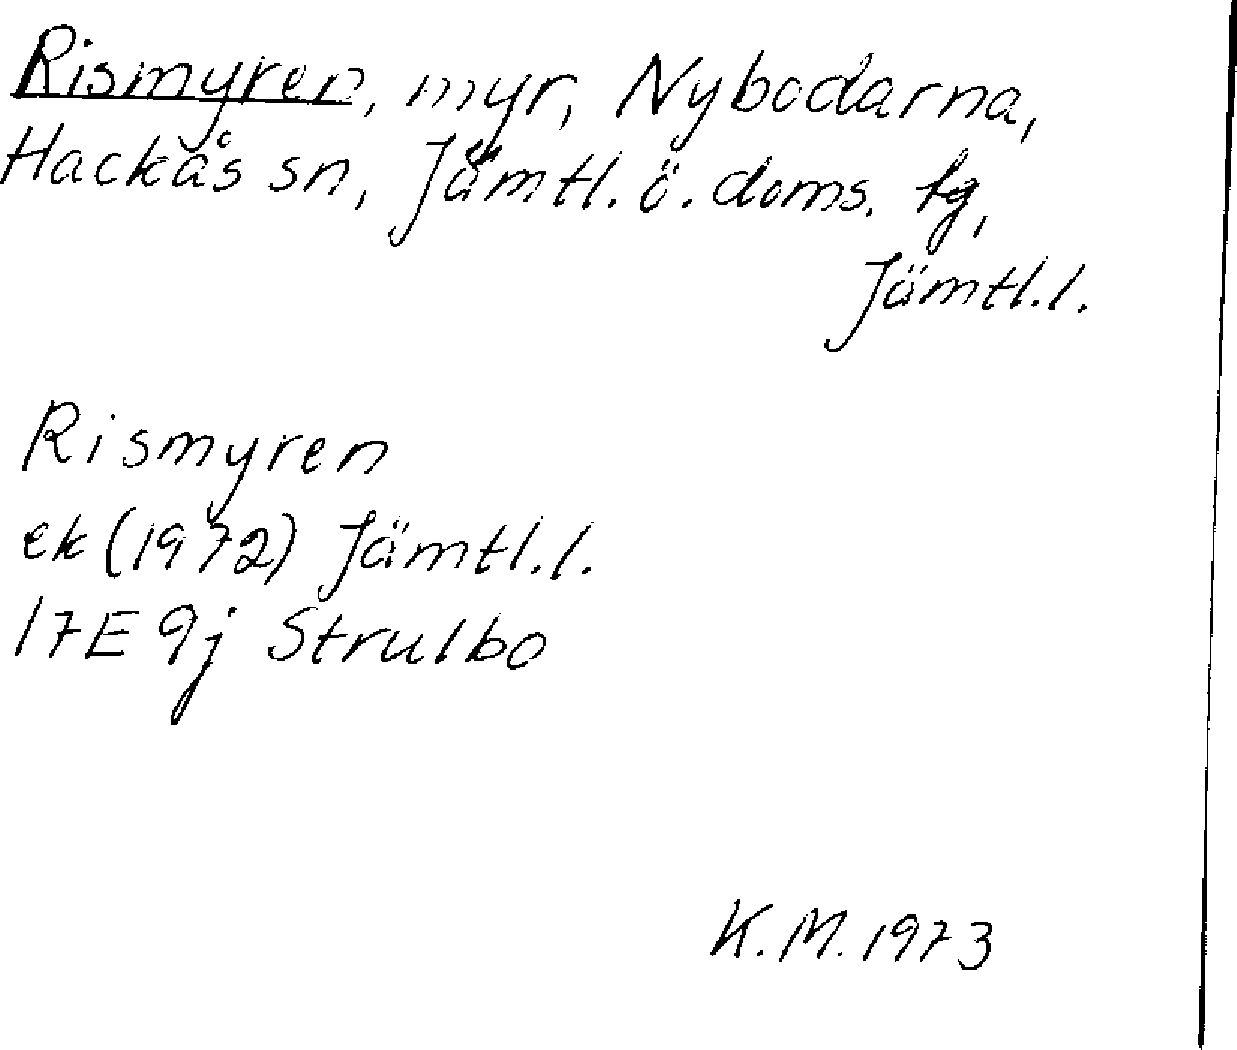 Rismyren, myr, Nybodarna,
Hackås sn, Jämtl. ö. doms. tg,
Jämtl. l.
Rismyren
ek (1972) Jämtl. l.
17E 9j Strulbo
K. M. 1973